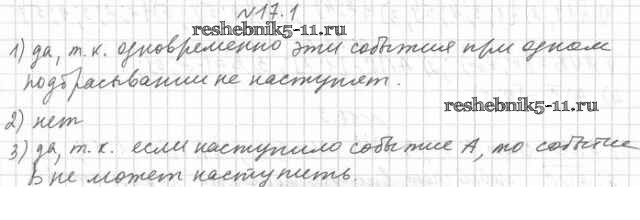 №17.1
reshebnik5-11.ru
1) да, т.к. одновременно эти события при одном
подбрасывании не наступят.
reshebnik5-11.ru
2) нет
3) да, т.к. если наступило событие А, то событие
В не может наступить.